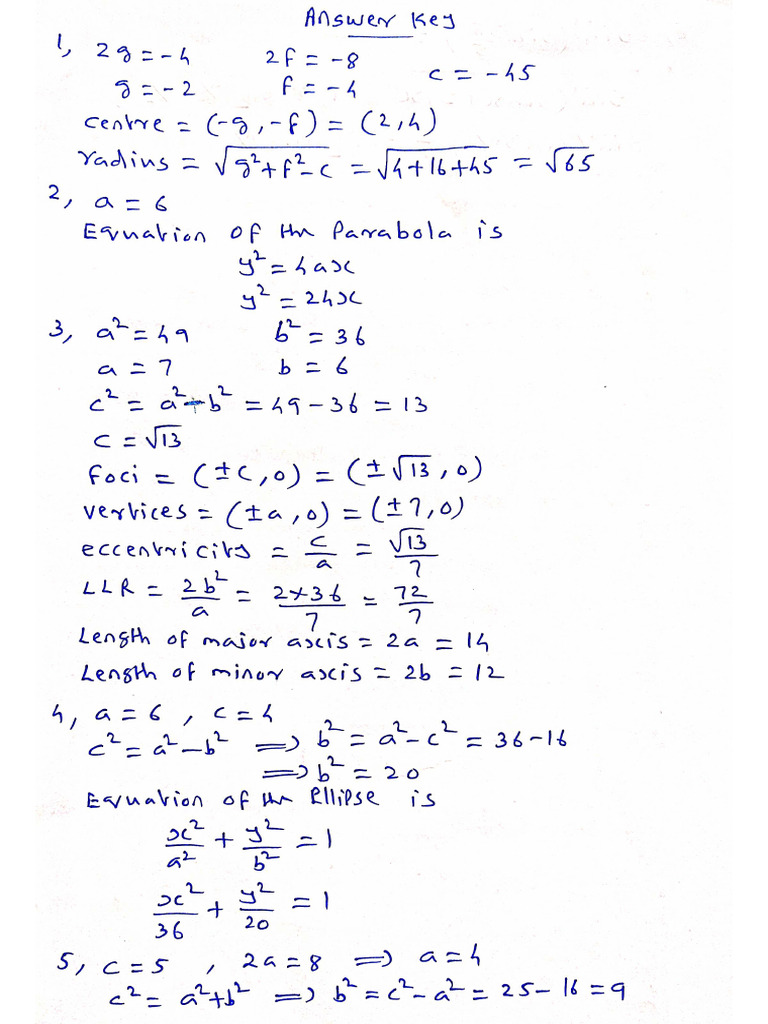 Answer Key
1, 2g = -4 2f = -8 c = -45
g = -2 f = -4
centre = (-g, -f) = (2, 4)
radius = √(g²+f²-c) = √(4+16+45) = √65
2, a = 6
Equation of the Parabola is
y² = 4ax
y² = 24x
3, a² = 49 b² = 36
a = 7 b = 6
c² = a² - b² = 49 - 36 = 13
c = √13
foci = (±c, 0) = (±√13, 0)
vertices = (±a, 0) = (±7, 0)
eccentricity = c/a = √13/7
LLR = 2b²/a = 2×36/7 = 72/7
Length of major axis = 2a = 14
Length of minor axis = 2b = 12
4, a = 6, c = 4
c² = a² - b² ⟹ b² = a² - c² = 36 - 16
⟹ b² = 20
Equation of the Ellipse is
x²/a² + y²/b² = 1
x²/36 + y²/20 = 1
5, c = 5, 2a = 8 ⟹ a = 4
c² = a² + b² ⟹ b² = c² - a² = 25 - 16 = 9